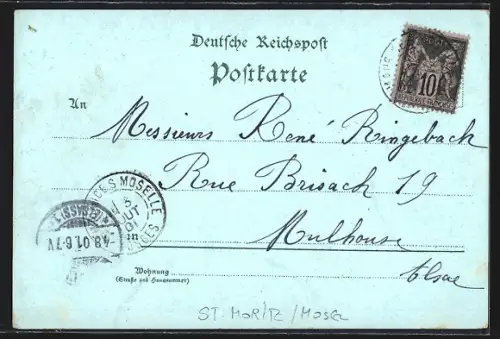 Deutsche Reichspost
Postkarte
An
Messieurs René Ringebach
Rue Brisach 19
Mulhouse
Elsae
Wohnung
(Straße und Hausnummer)
10
MOSELLE
4.8.01.6-7V
ST. MORITZ / MOSEL